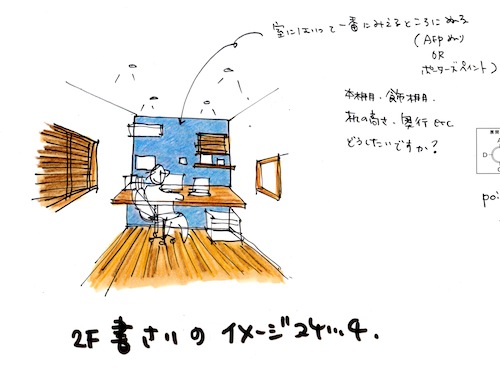 室にはいって一番にみえるところにぬる
(AEPぬり
OR
ポーターズペイント)
本棚、飾棚、
机の高さ、奥行 etc
どうしたいですか?
D
poi
2F 書さいの イメージ